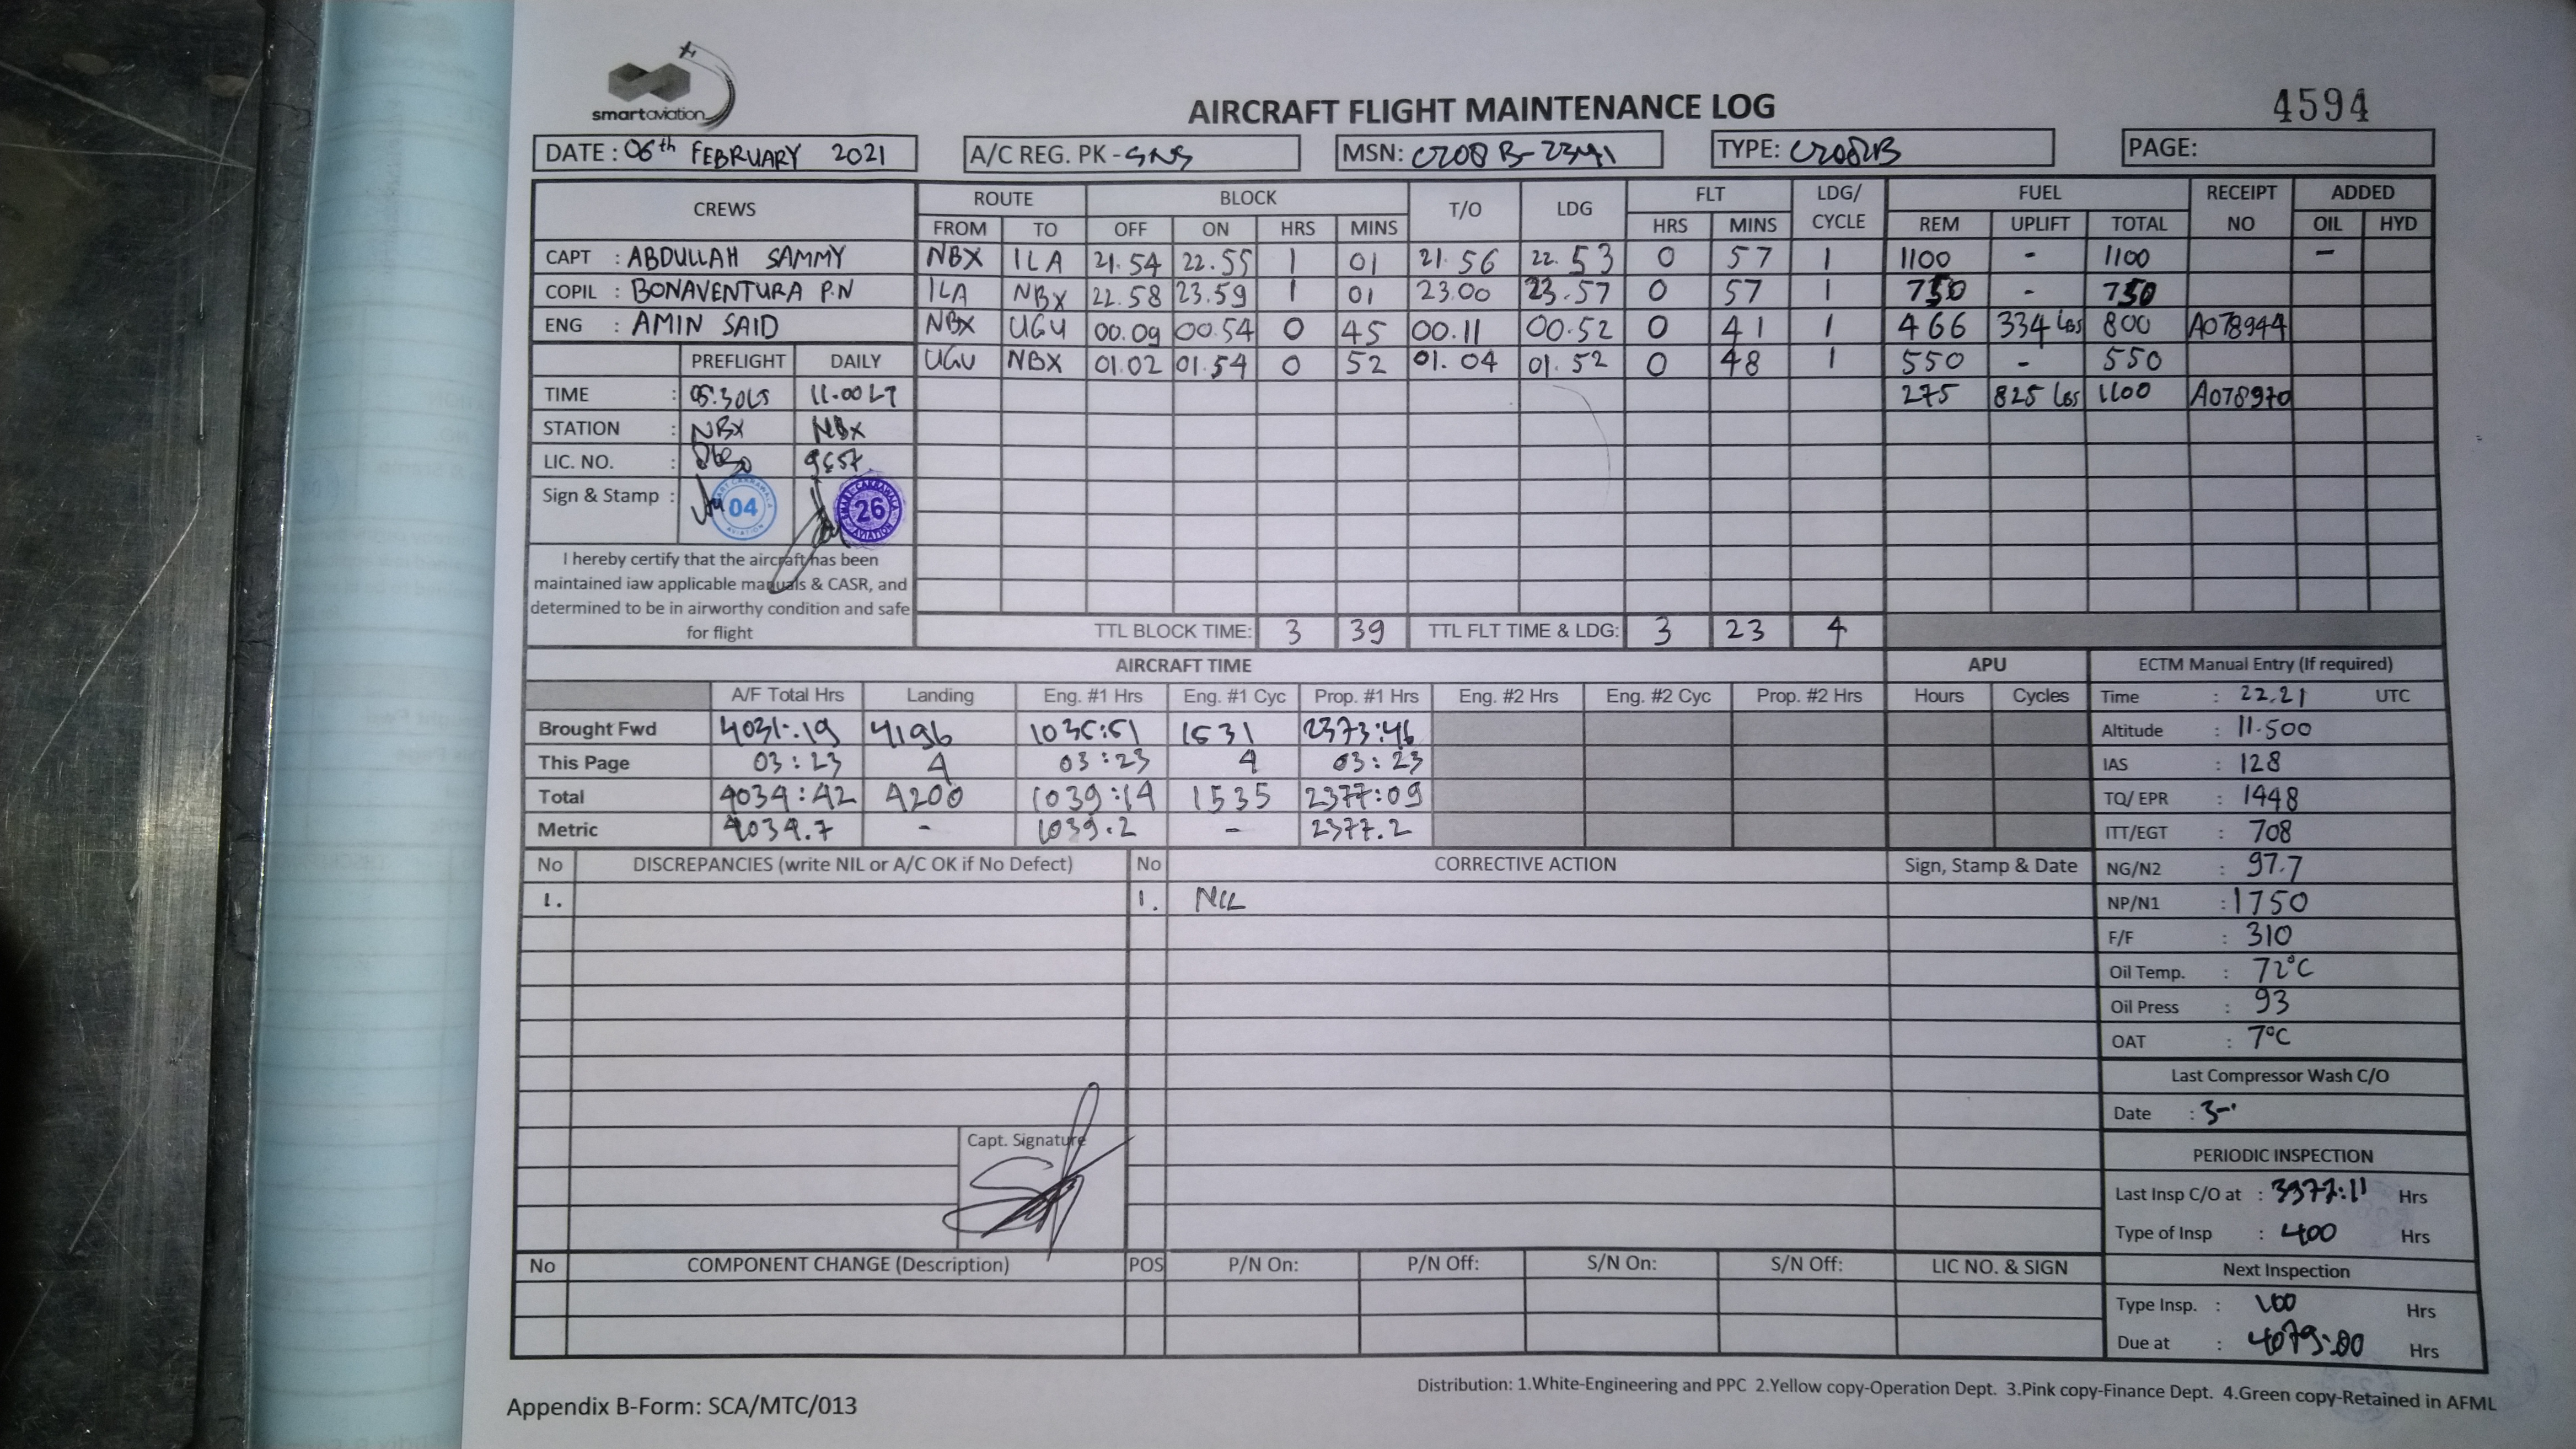 smartaviation
AIRCRAFT FLIGHT MAINTENANCE LOG
4594
DATE : 06th FEBRUARY 2021
A/C REG. PK - SNS
MSN: C208B-2341
TYPE: C208B
PAGE:
CREWS ROUTE BLOCK T/O LDG FLT LDG/ CYCLE FUEL RECEIPT NO ADDED
FROM TO OFF ON HRS MINS HRS MINS REM UPLIFT TOTAL OIL HYD
CAPT : ABDULLAH SAMMY NBX ILA 21.54 22.55 1 01 21.56 22.53 0 57 1 1100 - 1100 -
COPIL : BONAVENTURA P.N ILA NBX 22.58 23.59 1 01 23.00 23.57 0 57 1 750 - 750
ENG : AMIN SAID NBX UGU 00.09 00.54 0 45 00.11 00.52 0 41 1 466 334 Lbs 800 A078944
PREFLIGHT DAILY UGU NBX 01.02 01.54 0 52 01.04 01.52 0 48 1 550 - 550
TIME : 05.30LT 11.00 LT 275 825 Lbs 1100 A078970
STATION : NBX NBX
LIC. NO. : 9657
Sign & Stamp : 04 26
I hereby certify that the aircraft has been
maintained iaw applicable manuals & CASR, and
determined to be in airworthy condition and safe
for flight
TTL BLOCK TIME: 3 39 TTL FLT TIME & LDG: 3 23 4
AIRCRAFT TIME APU ECTM Manual Entry (If required)
A/F Total Hrs Landing Eng. #1 Hrs Eng. #1 Cyc Prop. #1 Hrs Eng. #2 Hrs Eng. #2 Cyc Prop. #2 Hrs Hours Cycles
Brought Fwd 4031:19 4196 1035:51 1531 2373:46
This Page 03:23 4 03:23 4 03:23
Total 4034:42 4200 1039:14 1535 2377:09
Metric 4034.7 - 1039.2 - 2377.2
Time : 22.21 UTC
Altitude : 11.500
IAS : 128
TQ/ EPR : 1448
ITT/EGT : 708
NG/N2 : 97.7
NP/N1 : 1750
F/F : 310
Oil Temp. : 72°C
Oil Press : 93
OAT : 7°C
Last Compressor Wash C/O
Date :
PERIODIC INSPECTION
Last Insp C/O at : 3977:11 Hrs
Type of Insp : 400 Hrs
Next Inspection
Type Insp. : 100 Hrs
Due at : 4079:00 Hrs
No DISCREPANCIES (write NIL or A/C OK if No Defect) No CORRECTIVE ACTION Sign, Stamp & Date
1. 1. NIL
Capt. Signature
No COMPONENT CHANGE (Description) POS P/N On: P/N Off: S/N On: S/N Off: LIC NO. & SIGN
Distribution: 1.White-Engineering and PPC 2.Yellow copy-Operation Dept. 3.Pink copy-Finance Dept. 4.Green copy-Retained in AFML
Appendix B-Form: SCA/MTC/013